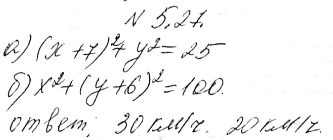 N 5.27.
а) (x+7)²+ y² = 25
б) x²+(y+6)² = 100.
ответ; 30 км/ч. 20 км/ч.